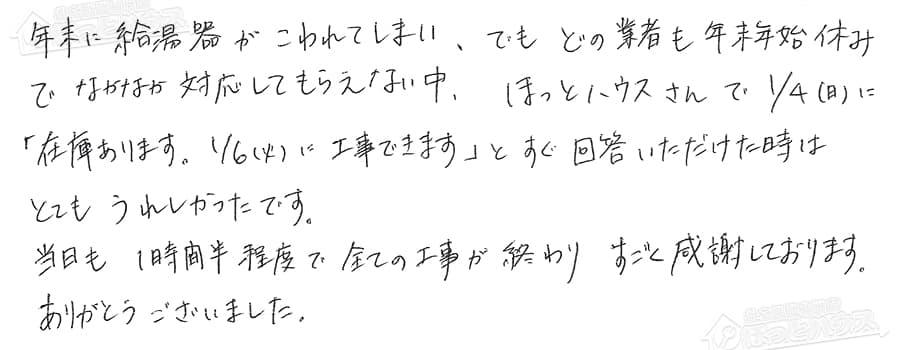 年末に給湯器がこわれてしまい、でもどの業者も年末年始休み
でなかなか対応してもらえない中、ほっとハウスさんで1/4(日)に
「在庫あります。1/6(火)に工事できます」とすぐ回答いただけた時は
とてもうれしかったです。
当日も1時間半程度で全ての工事が終わりすごく感謝しております。
ありがとうございました。
ほっとハウス